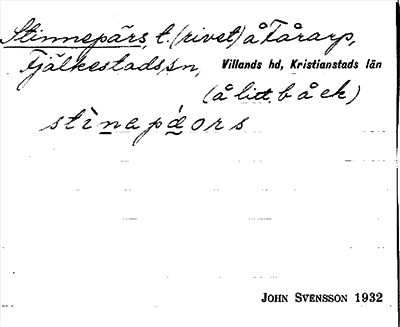 Stinnepärs, t. (rivet) å Tårarp,
Fjälkestads sn, Villands hd, Kristianstads län
(å litt. b å ek)
stìnapǽors
JOHN SVENSSON 1932